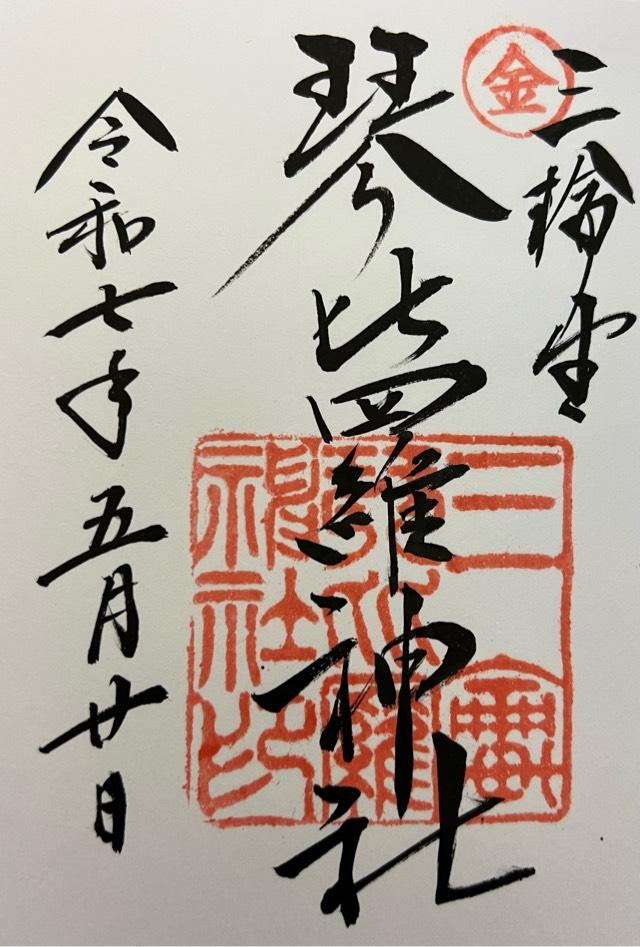 金
三輪
琴比羅神社
令和七年五月廿日
琴比羅
神社印